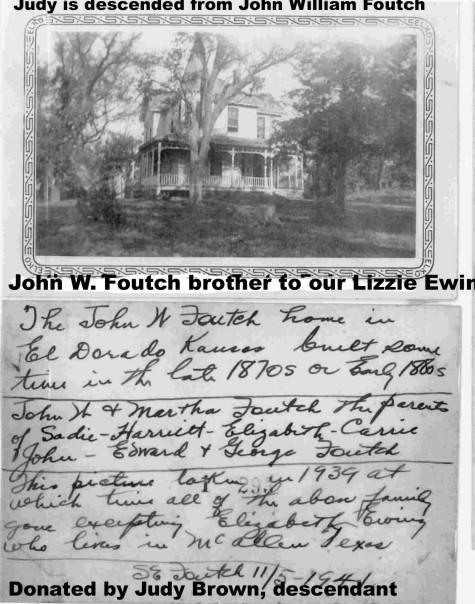 Judy is descended from John William Foutch
John W. Foutch brother to our Lizzie Ewin
The John W Foutch home in
El Dorado Kansas built some
time in the late 1870s or Early 1880s
John W & Martha Foutch the parents
of Sadie-Harriett-Elizabeth-Carrie
John - Edward & George Foutch
This picture taken in 1939 at
which time all of the above family
gone excepting Elizabeth Ewing
who lives in McAllen Texas
SE Foutch 11/5-1941
Donated by Judy Brown, descendant